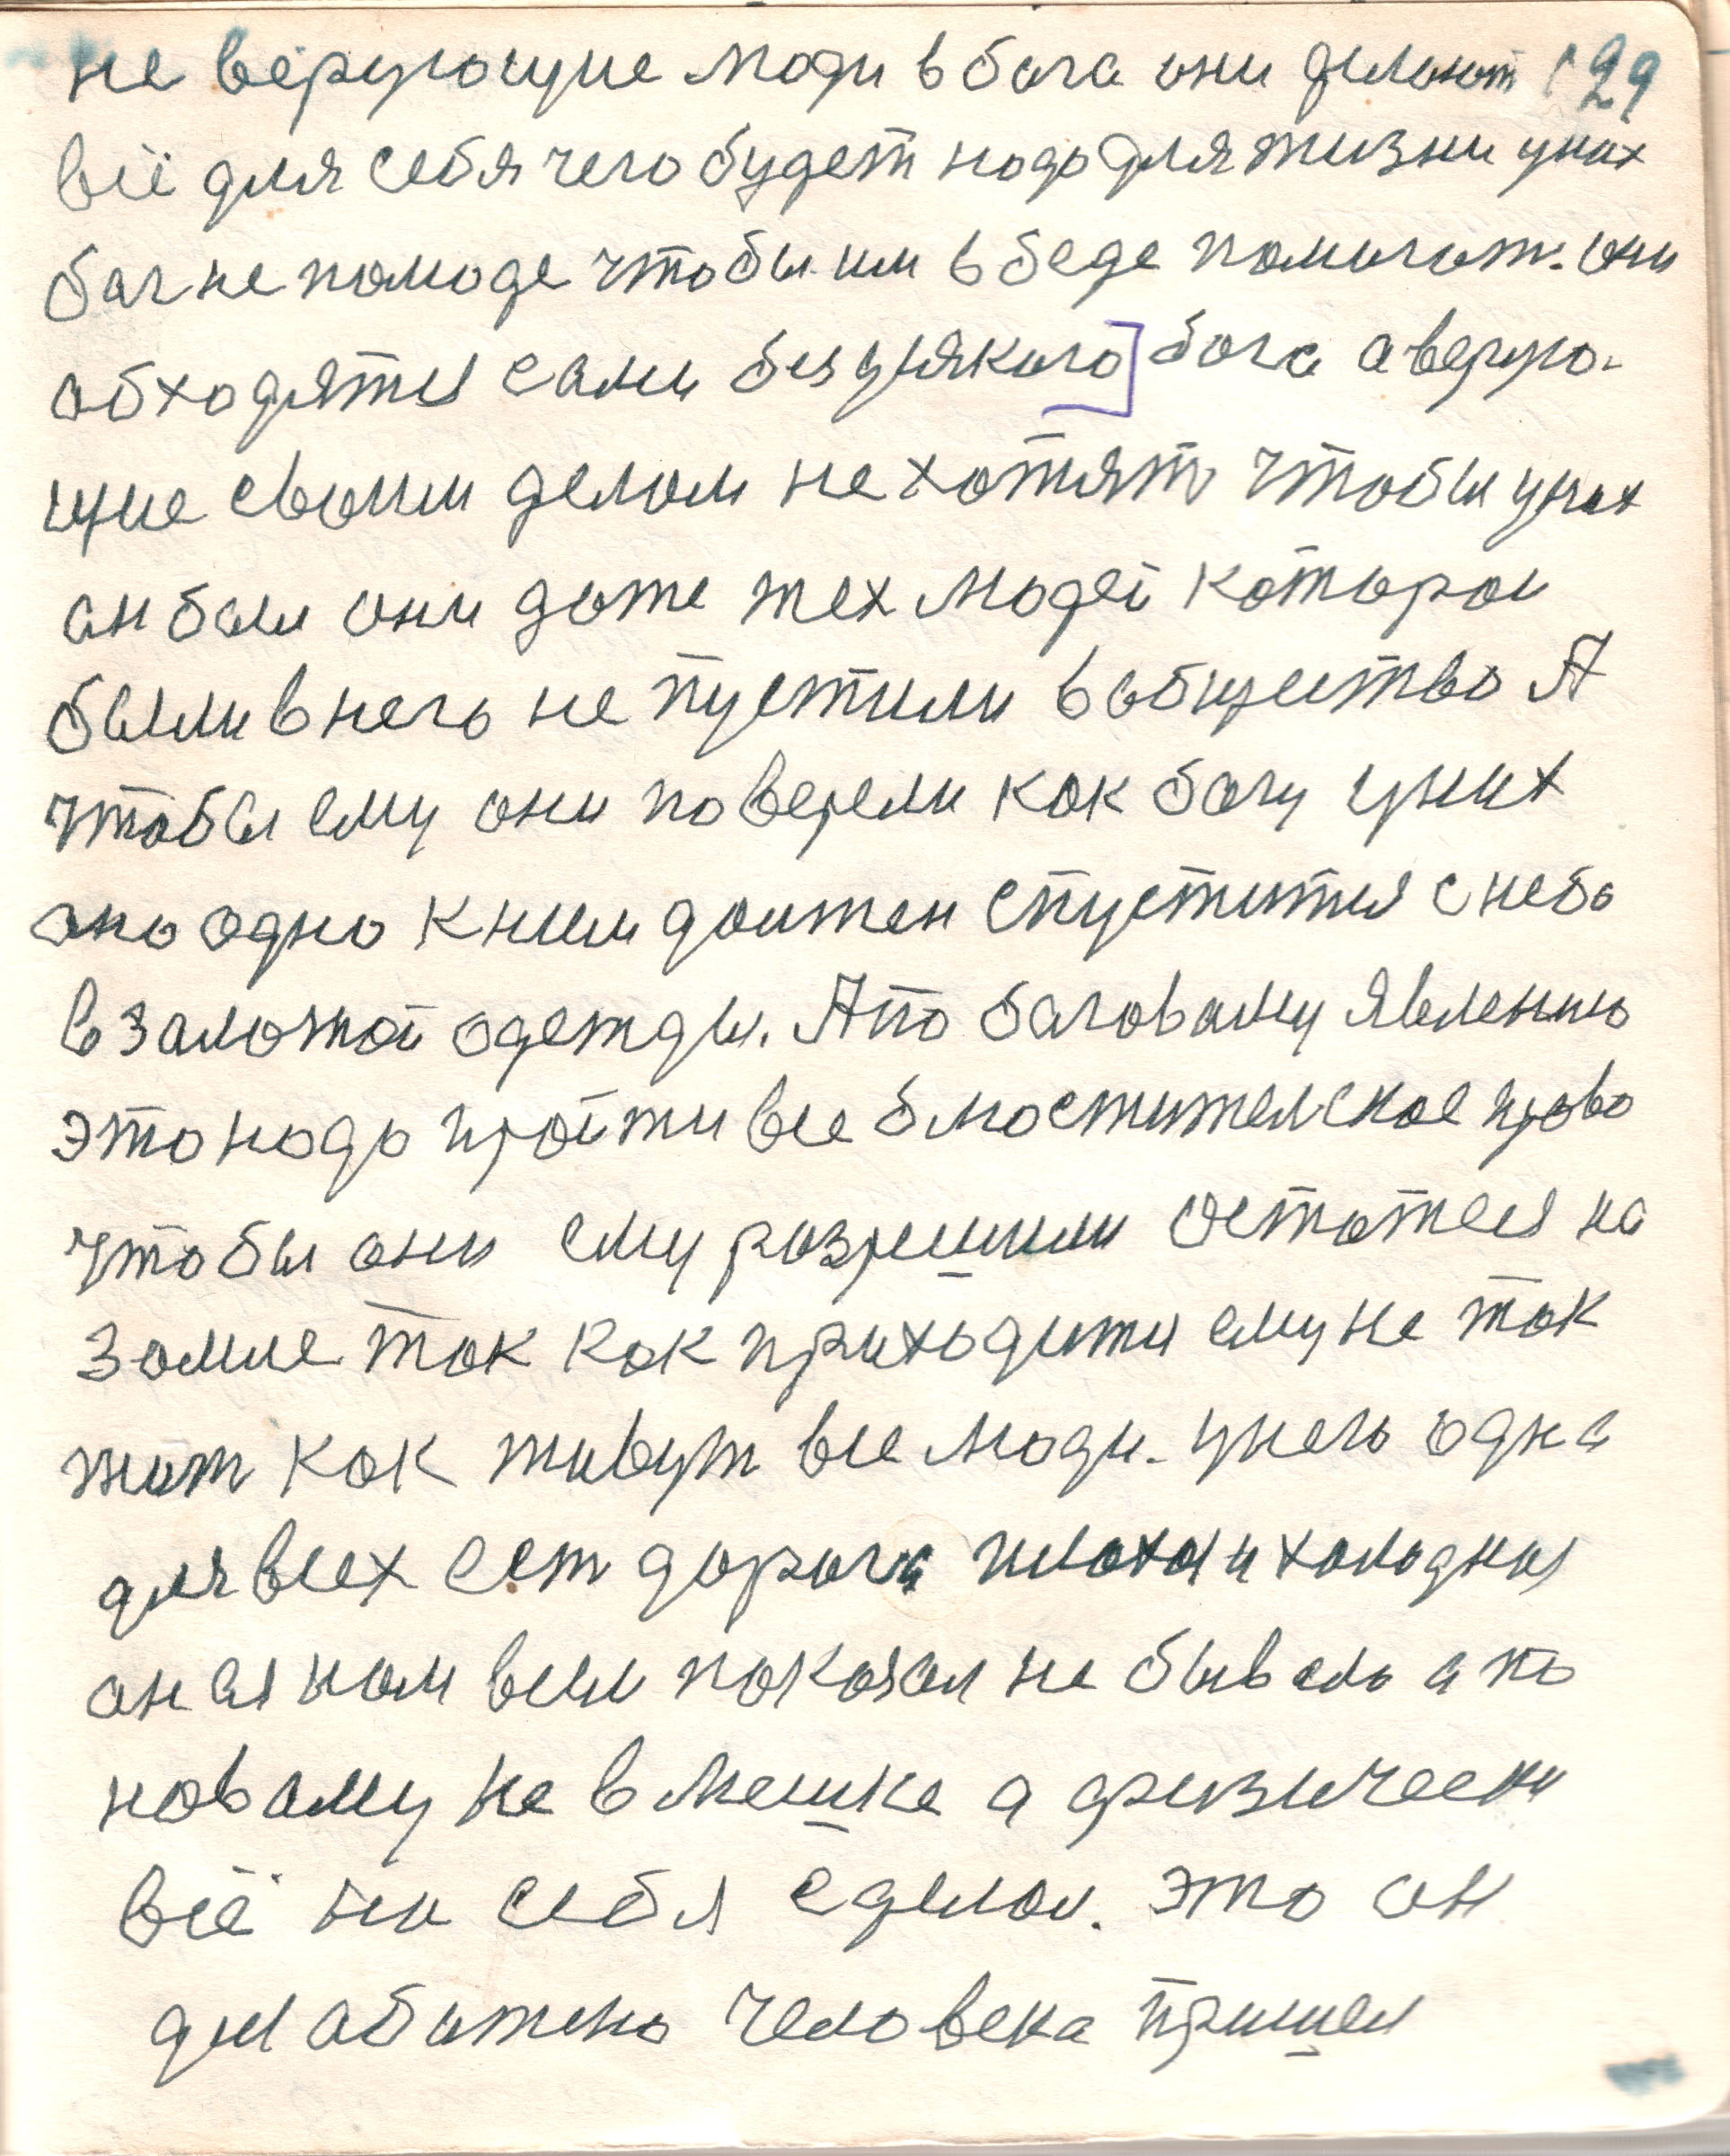 не верующие люди в бога они делают 199
всё для себя чего будет надо для жизни уних
баг не помоде чтобы им в беде помогат. они
абходятся сами без уякого] бога а верую-
щие своим делом не хотят чтобы уних
он был они даже тех людей которои
были в него не пустили в абщество А
чтобы ему они поверели как богу уних
оно одно к ним должен спуститися с неба
в залотой одежды. А по баговаму явлению
это надо пройти все блюстителское право
чтобы они ему разрешили остатся на
замле так как приходится ему не так
жит как живут все люди. унего одна
для всех ест дорога плохая и холодная
он ея нам всем показал не бывало а по
новаму не в мешке а физически
всё на себя сделал. это он
для абижено человека пришел